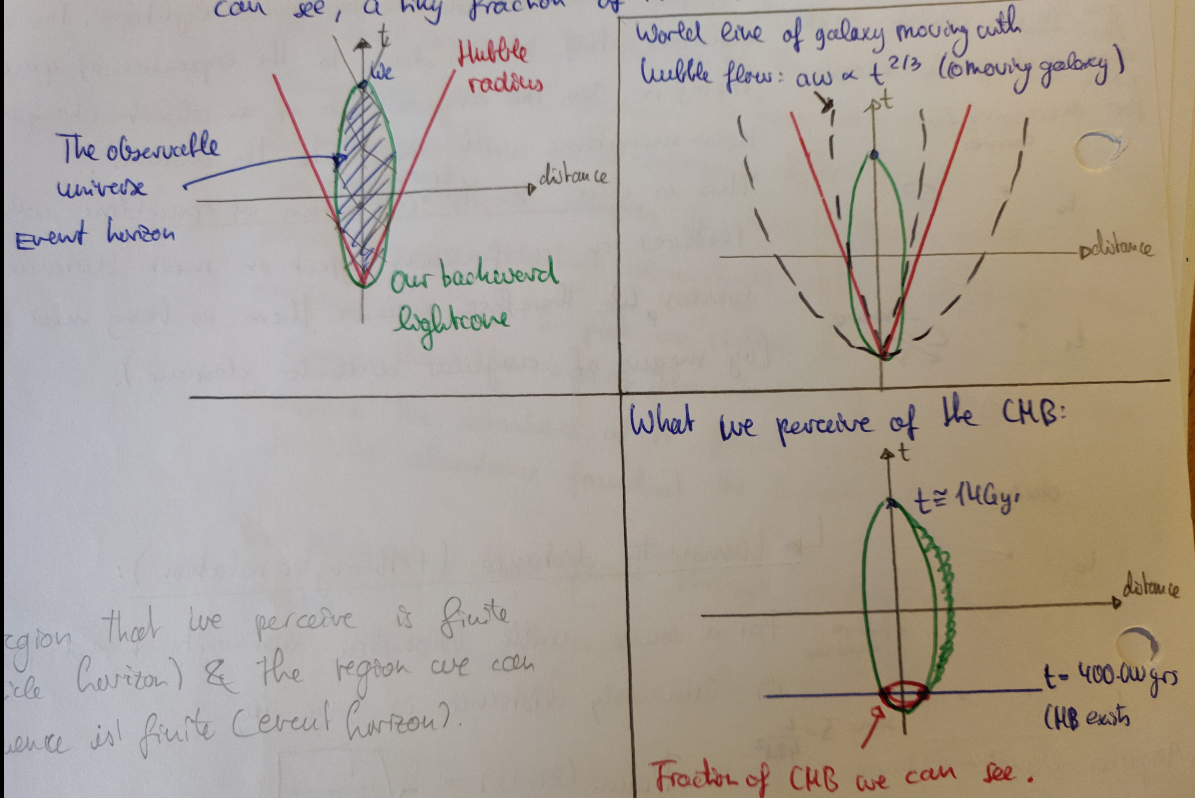 can see, a tiny fraction of
t
We
Hubble
radius
The observable
universe
Event horizon
distance
Our backward
lightcone
World line of galaxy moving with
hubble flow: a(t) ∝ t^2/3 (comoving galaxy)
t
distance
What we perceive of the CMB:
t
t ≅ 14Gyr
distance
t = 400.000 yrs
CMB exists
Fraction of CMB we can see.
egion that we perceive is finite
icle horizon) & the region we can
uence is finite (event horizon).